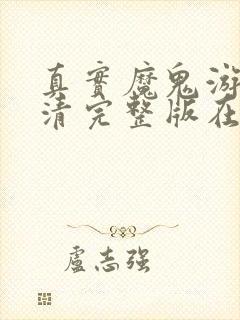 真實魔鬼游
清完整版在
盧志強